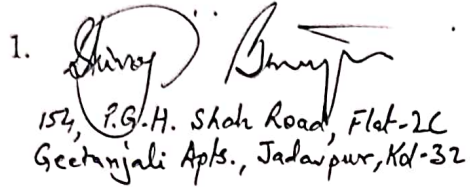 1.
154, P.G.H. Shah Road, Flat-2C
Geetanjali Apts., Jadavpur, Kol-32